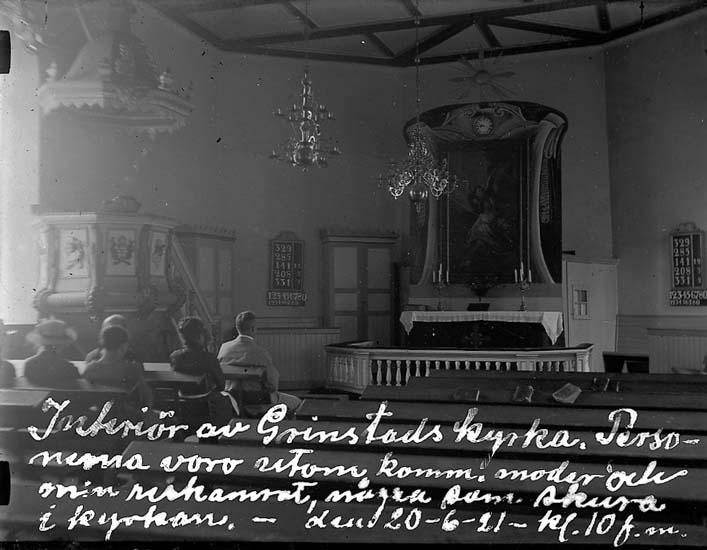 329
285
141
208
331
1234567 80
329
285
141
208
331
1234567 80
Interiör av Grinstads kyrka. Perso-
nerna voro utom komm. moder och
min reskamrat, några som skura
i kyrkan. — den 20-6-21 — kl. 10 f.m.